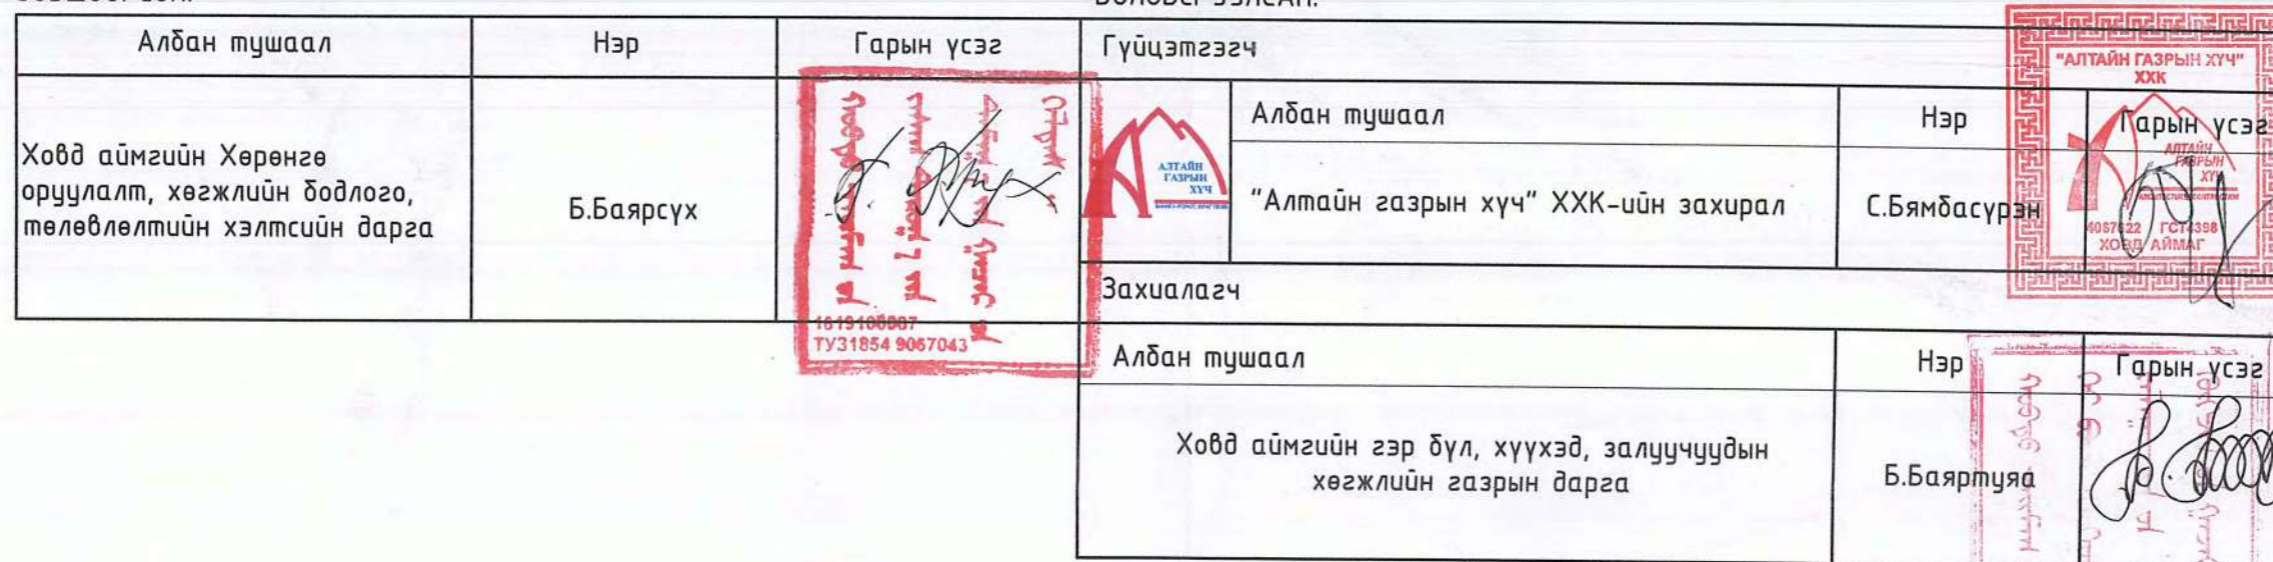 Албан тушаал
Нэр
Гарын үсэг
Ховд аймгийн Хөрөнгө
оруулалт, хөгжлийн бодлого,
төлөвлөлтийн хэлтсийн дарга
Б.Баярсүх
ТУ31854 9067043
Гүйцэтгэгч
АЛТАЙН
ГАЗРЫН
ХҮЧ
Албан тушаал
Нэр
Гарын үсэг
"Алтайн газрын хүч" ХХК-ийн захирал
С.Бямбасүрэн
"АЛТАЙН ГАЗРЫН ХҮЧ"
ХХК
АЛТАЙН
ГАЗРЫН
ХҮЧ
ГСТ4398
ХОВД АЙМАГ
Захиалагч
Албан тушаал
Нэр
Гарын үсэг
Ховд аймгийн гэр бүл, хүүхэд, залуучуудын
хөгжлийн газрын дарга
Б.Баяртуяа